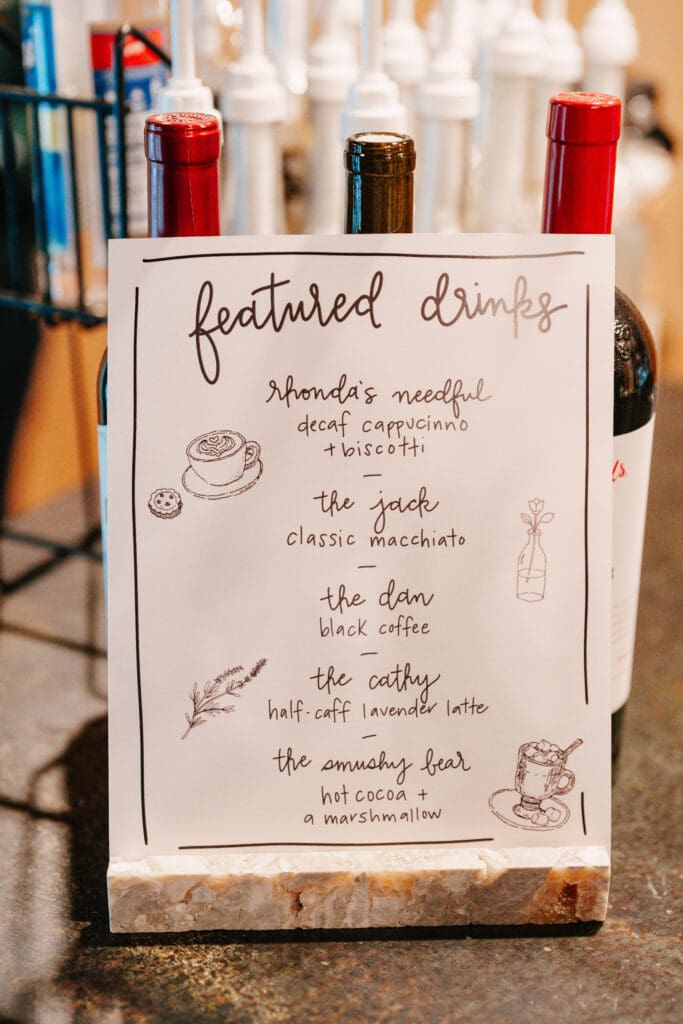 featured drinks
rhonda's needful
decaf cappuccino
+ biscotti
—
the jack
classic macchiato
—
the dan
black coffee
—
the cathy
half-caff lavender latte
—
the smushy bear
hot cocoa +
a marshmallow